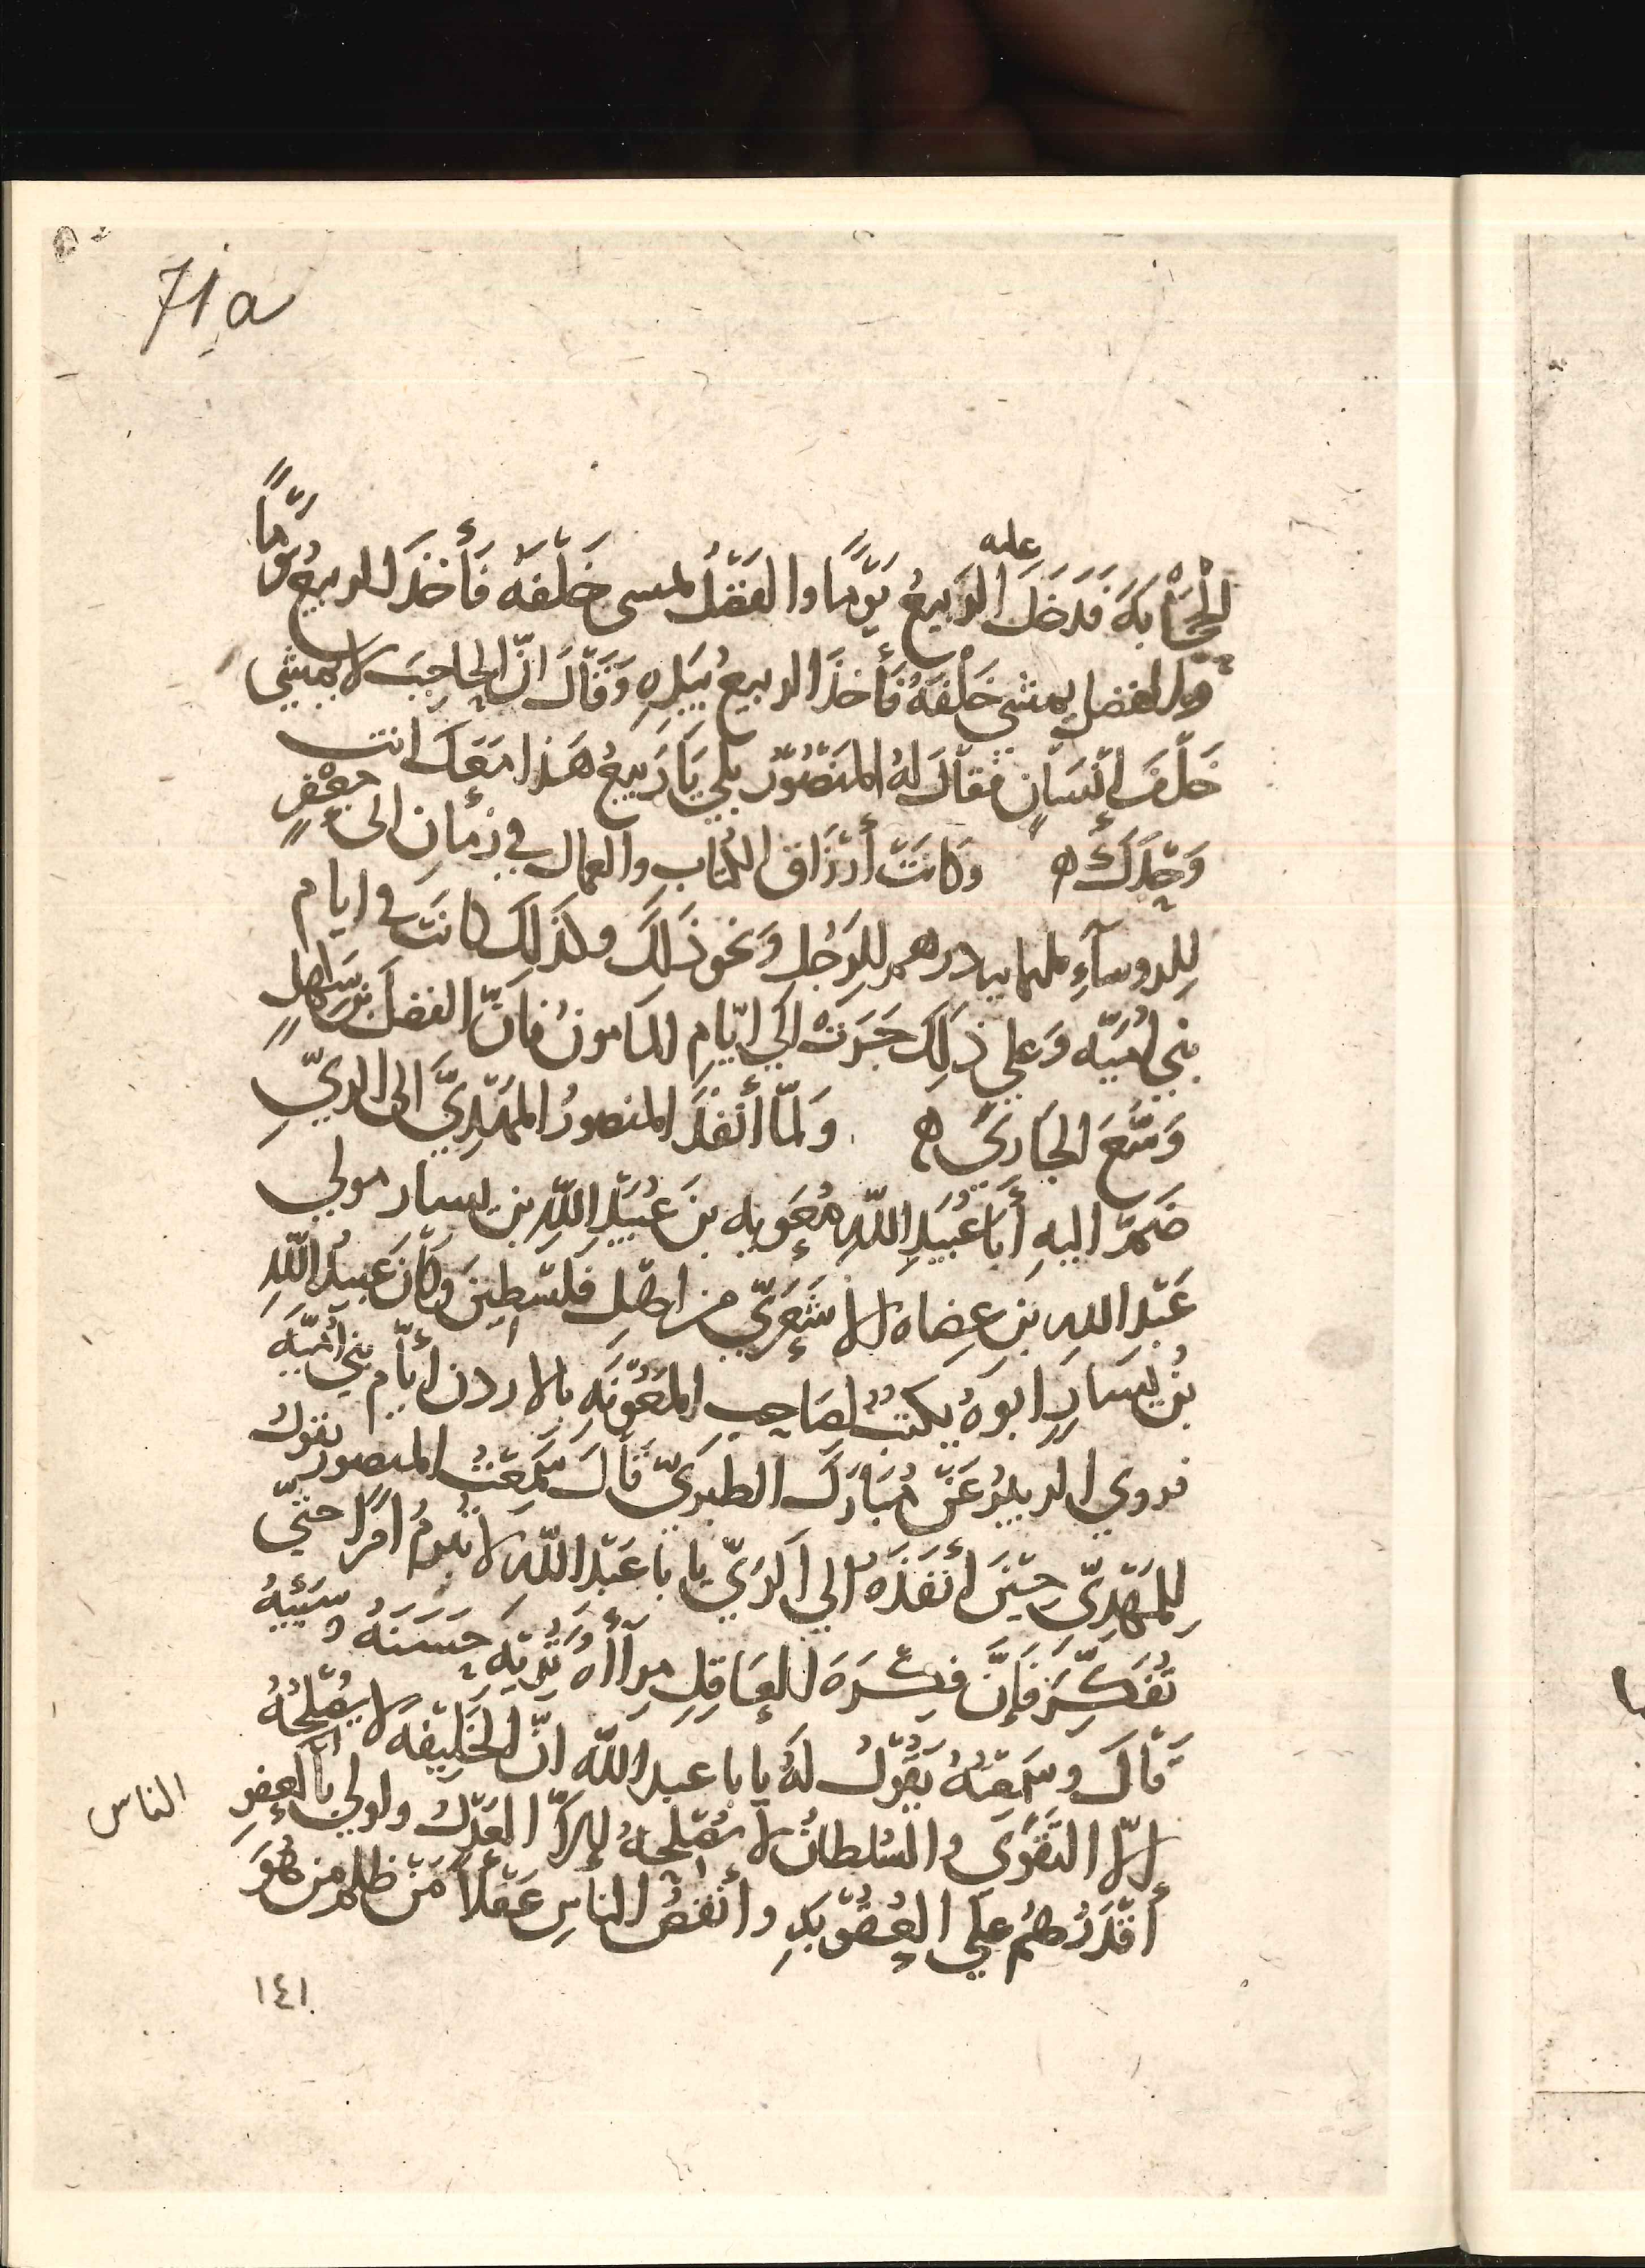 71a
عليه
الحِجَابَةَ فَدَخَلَ الرَبيعُ يَوْمًا والفَضْلُ يمشى خَلْفَهُ فَأَخَذَ الربيعُ يَوْمًا
والفضل يمشى خَلْفَهُ فَأَخَذَ الربيعُ بيَدِهِ وَقَالَ انَّ الحاجِبَ لا يمشي
خَلْفَ إنْسَانٍ فقَالَ لهُ المَنْصُوْر بلي يَا رَبيعُ هَذا مَعَكَ انت
وَحْدَكَ ه وَكَانَتْ أرْزَاقُ الكُتابِ والعمال في زمانِ ابى جعْفرٍ
لِلروسآءِ ثلثمايه درهم للرَجُلِ وَنحو ذَلِكَ وكذَلِكَ كانَت في ايام
بني أُمَيّه وَعلي ذَلِكَ جَرَتْ الَي ايّامِ المَامونُ فَانّ الفضلَ بن سَهلٍ
وَسَّعَ الجَاريَ ه وَلَمّا أنْفَذَ المنصورُ المَهْدِيَّ الى الريِّ
ضَمَّ اليهِ أبَا عُبَيْدِ اللّهِ مُعَوِيه بنَ عُبَيْدِ اللّهِ بن يسار مولي
عَبْد الله بن عِضاه الأشْعَرِيّ من اهْلِ فَلَسْطِينَ وَكَانَ عُبيدُ اللّهِ
بنُ يَسَارٍ ابوهُ يكتُبُ لصَاحِبِ المَعُوْنَهِ بالاردن أيّام بني أُمَيَّه
فروي الربيعُ عَنْ مُبَارَك الطبريّ قَالَ سَمِعْتُ المنصور يقولُ
لِلمَهْدِيِّ حِيْنَ أنْفَذَهُ الي الرَيّ يا با عَبْد اللّه لا تُبرِمُ امرًا حتّي
تُفَكِّرَ فَإنَّ فِكْرَةَ العَاقِلِ مِرآأه تُرِيْهِ حَسَنَهُ وسَيِّئِهُ
قَالَ وسَمِعْتُهُ يَقُوْلُ لَهُ يا با عبد اللّه انّ الخَلِيْفه لا يُصْلِحُهُ
إلاّ التَقْوَى والسُلطانُ لا يُصْلِحُهُ إلاّ العَدْلُ واولي بالعفوِ
الناس
أقْدَرُهُمْ علَي العُقُوْبَهِ وأنْقَصُ الناسِ عَقْلاً مَنْ ظلم من هُوَ
١٤١